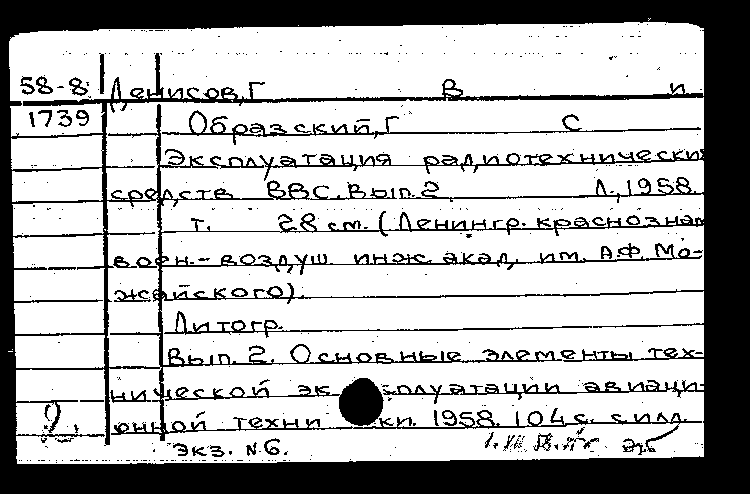 58-8 Денисов, Г В и
1739 Образский, Г С
Эксплуатация радиотехнически
средств ВВС. Вып. 2. Л., 1958.
т. 28 cm. (Ленингр. краснознам
воен.- воздуш. инж. акад. им. А.Ф. Мо-
жайского).
Литогр.
Вып. 2. Основные элементы тех-
нической эксплуатации авиаци-
2. онной техники. 1958. 104 с. с илл.
экз. N6.